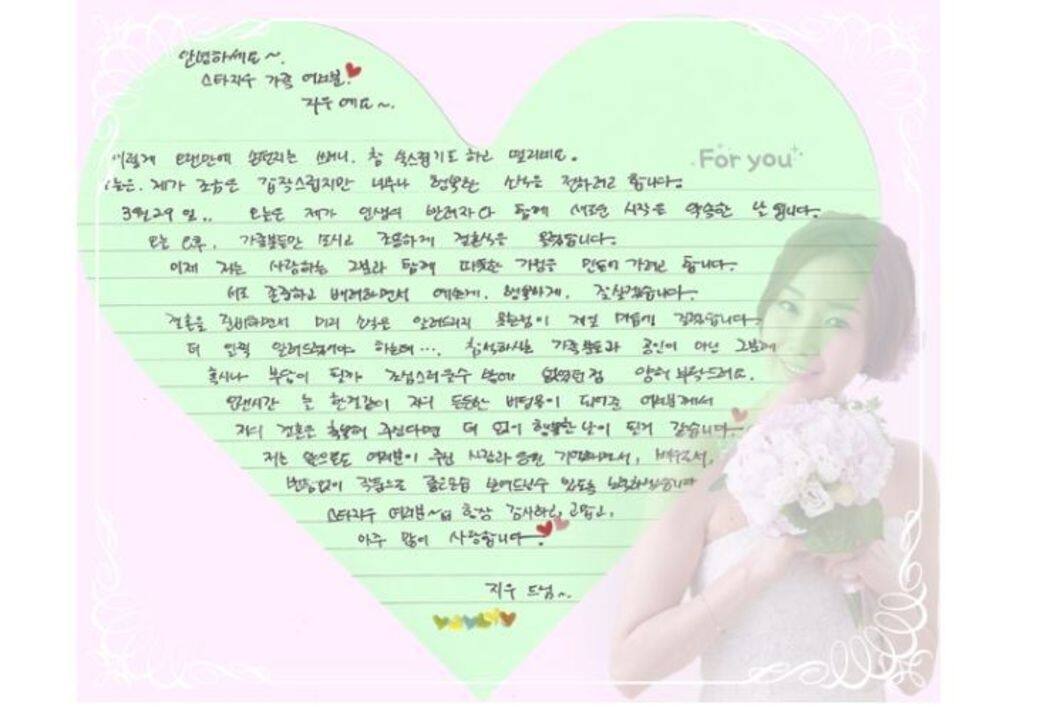 안녕하세요~.
스타지우 가족 여러분.
지우 예요~.
For you
이렇게 오랜만에 손편지를 쓰려니, 참 쑥스럽기도 하고 떨리네요.
오늘은, 제가 조금은 갑작스럽지만 너무나 행복한 소식을 전하려고 합니다.
3월 29일.. 오늘은 제가 인생의 반려자와 함께 새로운 시작을 약속한 날 입니다.
오늘 오후, 가족분들만 모시고 조용하게 결혼식을 올렸습니다.
이제 저는 사랑하는 그분과 함께 따뜻한 가정을 만들어 가려고 합니다.
서로 존중하고 배려하면서 예쁘게, 행복하게, 잘살겠습니다.
결혼을 준비하면서 미리 소식을 알려드리지 못한점이 제일 마음에 걸렸습니다.
더 일찍 알려드렸어야 하는데..., 참석하시는 가족분들과 공인이 아닌 그분께
혹시나 부담이 될까 조심스러울수 밖에 없었던점 양해 부탁드려요.
오랜시간 늘 한결같이 저의 든든한 버팀목이 되어준 여러분께서
저의 결혼을 축복해 주신다면 더 없이 행복한 날이 될거 같습니다.
저는 앞으로도 여러분이 주신 사랑과 응원 기억하면서, 배우로서,
변함없이 작품으로 좋은모습 보여드릴수 있도록 노력하겠습니다
스타지우 여러분~ 항상 감사하고, 고맙고,
아주 많이 사랑합니다.
지우 드림~.